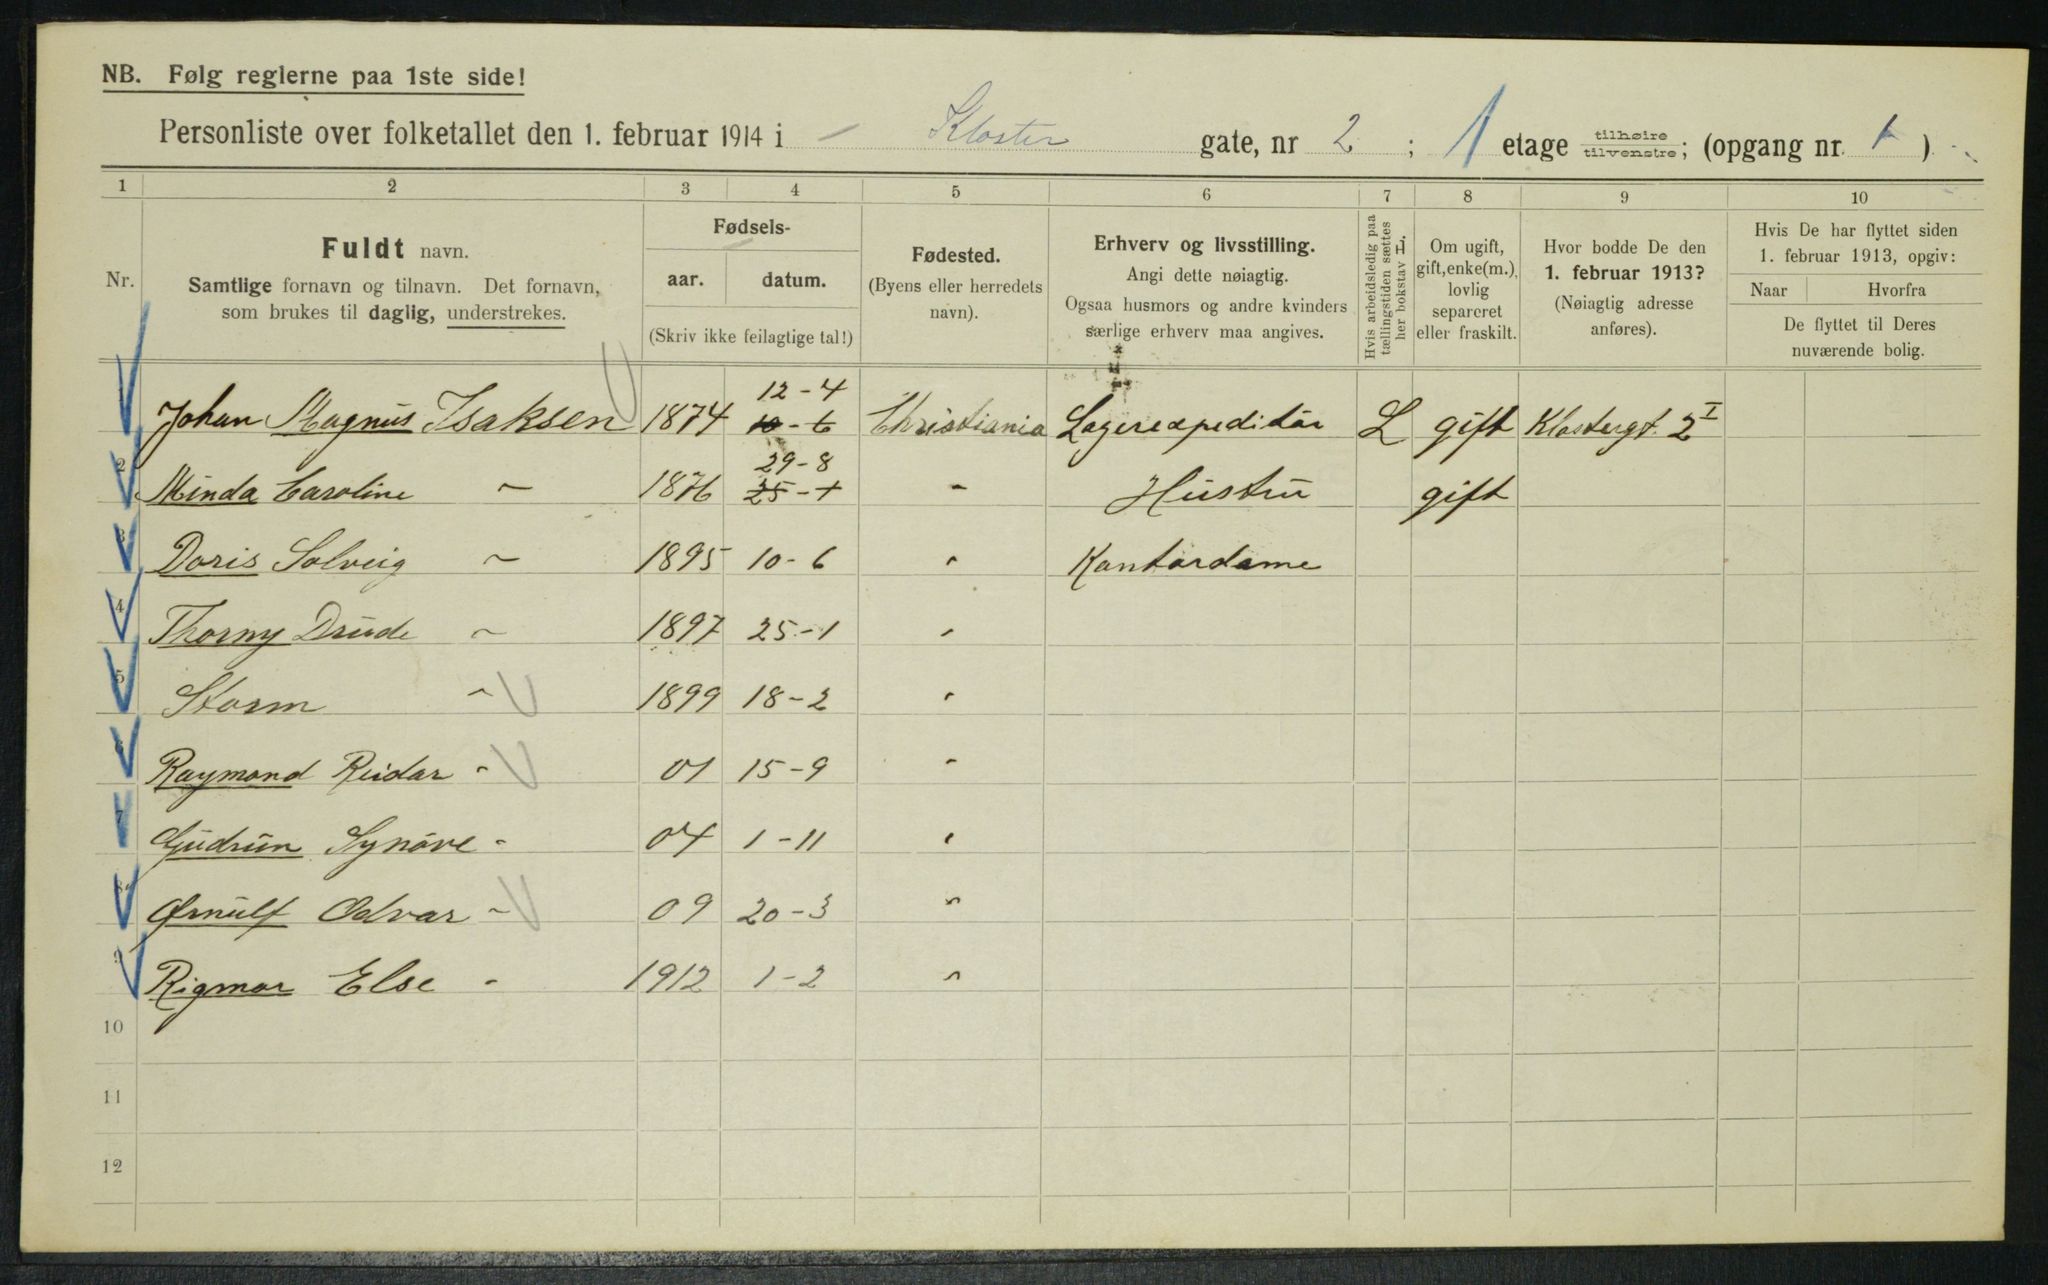 NB. Følg reglerne paa 1ste side!
Personliste over folketallet den 1. februar 1914 i Kloster gate, nr 2 ; 1 etage tilhøire tilvenstre; (opgang nr. 1 )
1 2 3 4 5 6 7 8 9 10
Nr.
Fuldt navn.
Samtlige fornavn og tilnavn. Det fornavn,
som brukes til daglig, understrekes.
Fødsels-
aar. datum.
(Skriv ikke feilagtige tal!)
Fødested.
(Byens eller herredets
navn).
Erhverv og livsstilling.
Angi dette nøiagtig.
Ogsaa husmors og andre kvinders
særlige erhverv maa angives.
Hvis arbeidsledig paa
tællingstiden sættes
her bokstav L.
Om ugift,
gift, enke(m.),
lovlig
separeret
eller fraskilt.
Hvor bodde De den
1. februar 1913?
(Nøiagtig adresse
anføres).
Hvis De har flyttet siden
1. februar 1913, opgiv:
Naar Hvorfra
De flyttet til Deres
nuværende bolig.
12-4
1 Johan Magnus Isaksen 1874 10-6 Christiania Lagerexpeditör L gift Klostergt. 2 I
29-8
2 Minda Caroline " 1876 25-1 " Hustru gift
3 Doris Solveig " 1895 10-6 " Kontordame
4 Thorny Drude " 1897 25-1 "
5 Storm " 1899 18-2 "
6 Raymond Reidar " 01 15-9 "
7 Gudrun Synöve " 04 1-11 "
8 Ørnulf Odvar " 09 20-3 "
9 Rigmor Else " 1912 1-2 "
10
11
12